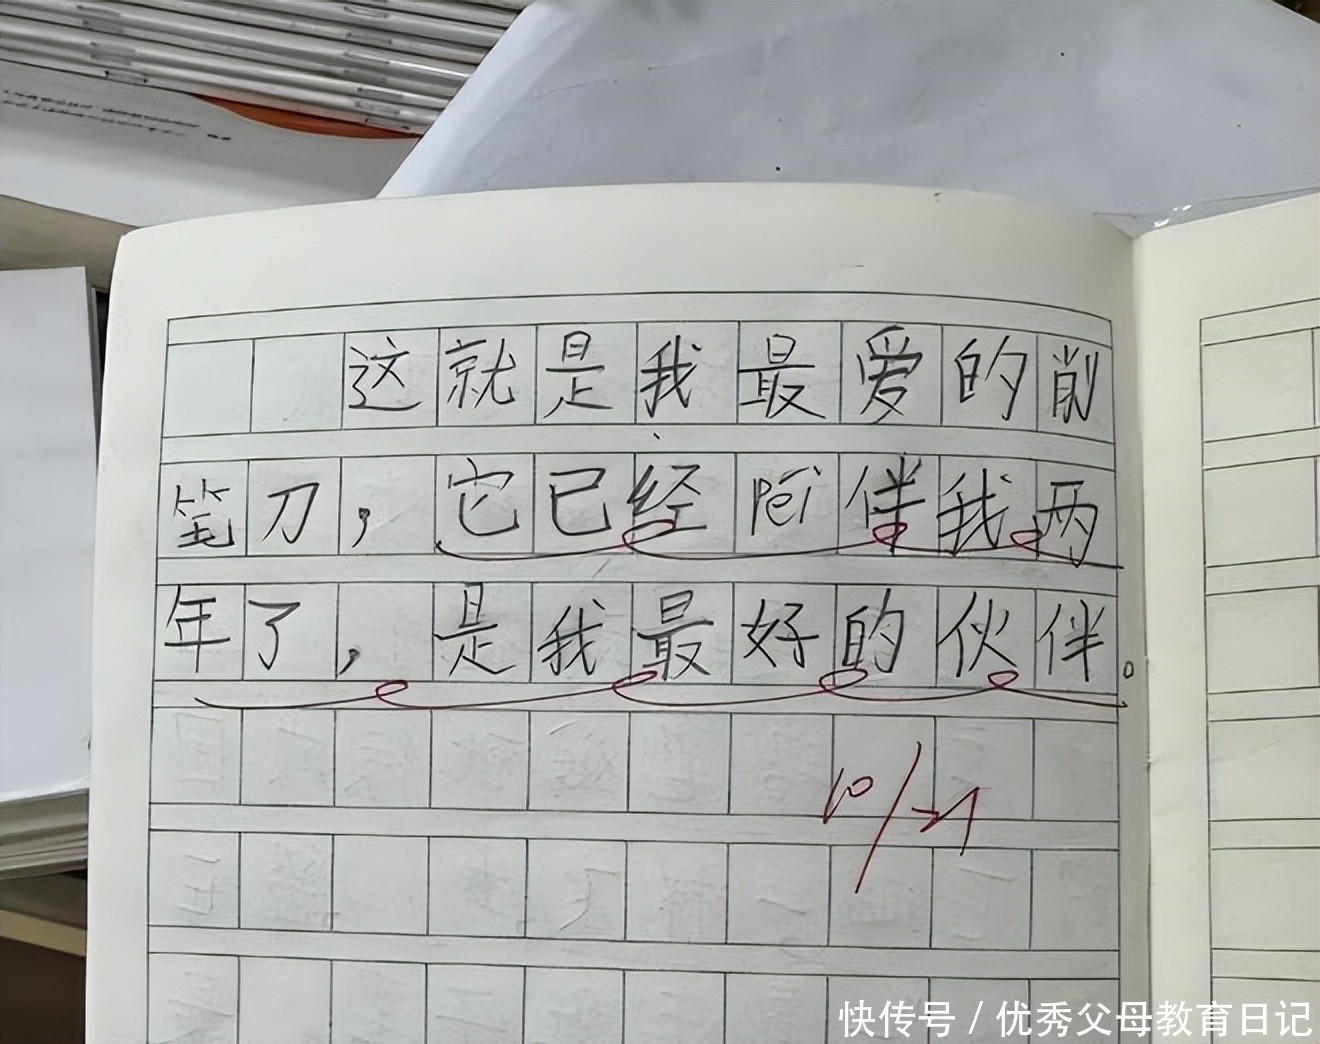 这就是我最爱的削
笔刀，它已经péi伴我两
年了，是我最好的伙伴。
10/21
快传号 / 优秀父母教育日记